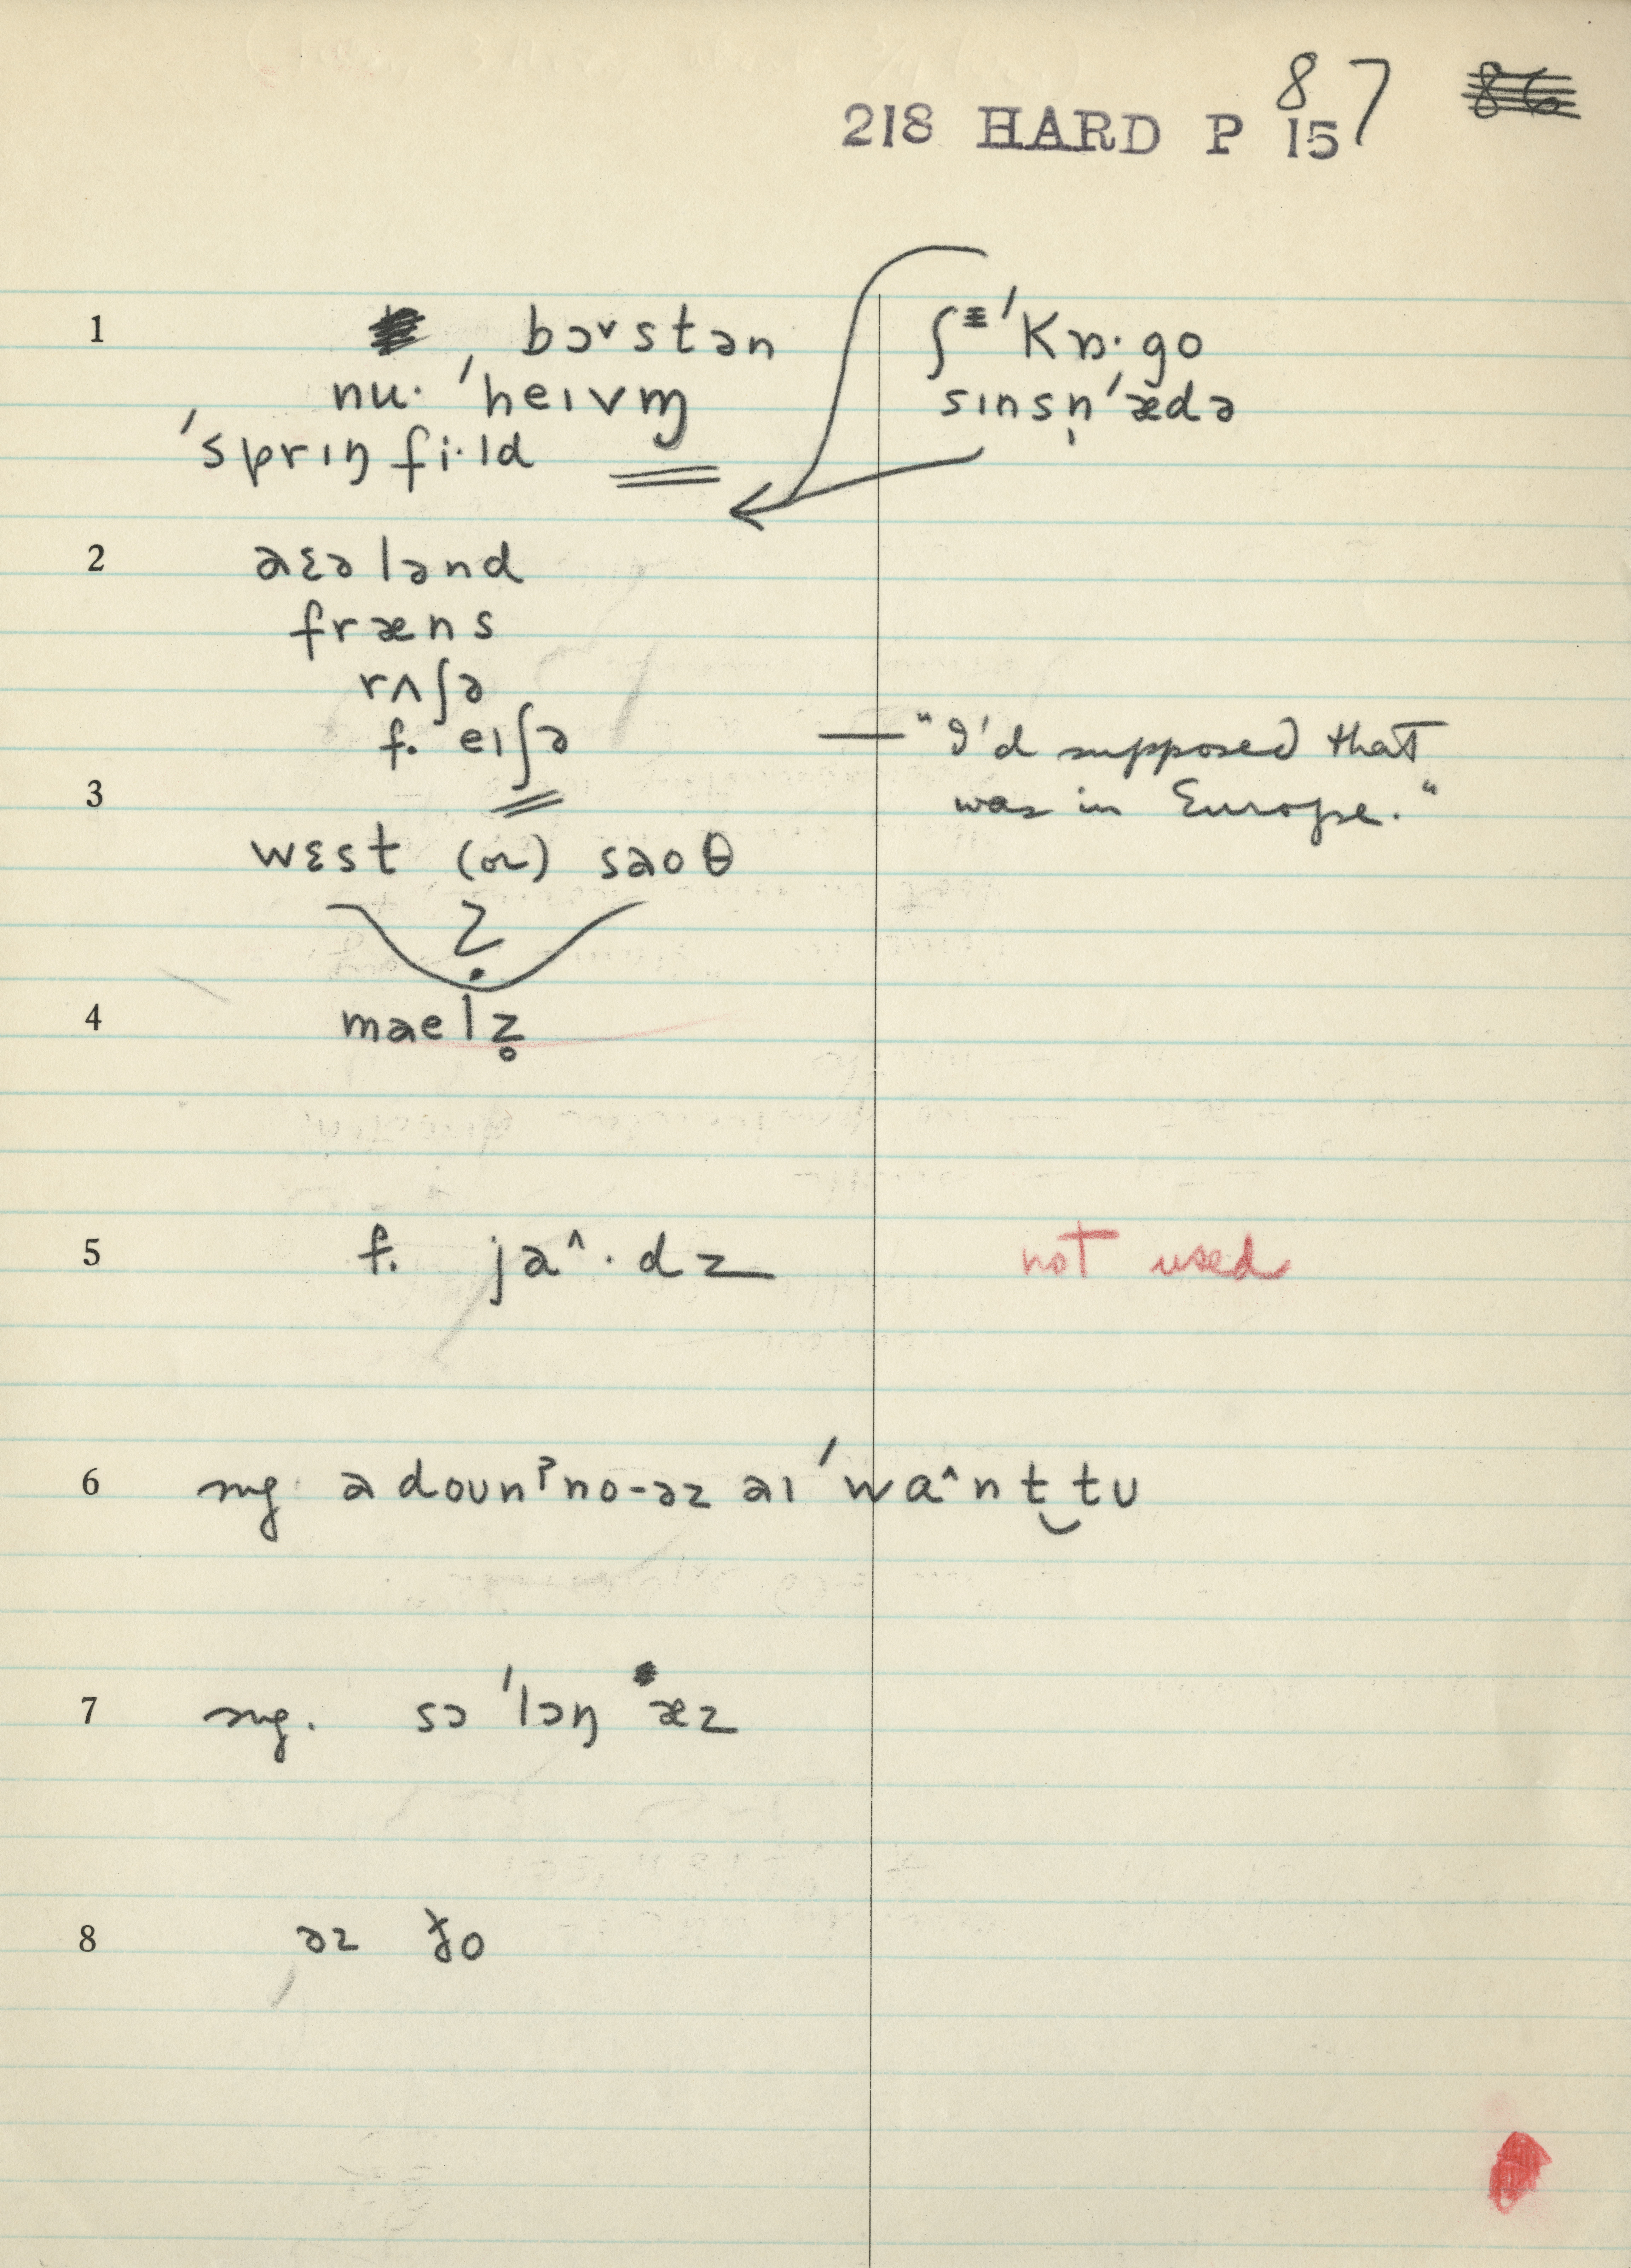 87 86
218 HARD P 15
1 bɔ˅stən
nu· ˈheɪvm̩
ˈsprɪŋfi·ld
ʃˈkɒ·go
sɪnsn̩ˈædə
2 aɛələnd
fræns
rʌʃə
f. eɪʃə
— "I'd supposed that
was in Europe."
3
wɛst (or) saoθ
?
4 maelz̥
5 f. ja^·dz not used
6 ng. a doʊnˀno-əz aɪ ˈwa^nt‿tʊ
7 ng. sɔ ˈlɔŋ æz
8 əz ɟo